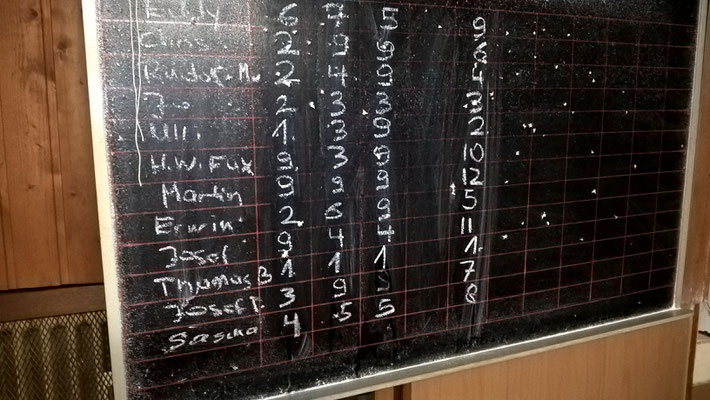 Eddy 6 7 5 9
Chris 2 9 9 6
Rudolf. M. 2 4 9 4
Jo 2 3 3 3
Ulli 1 3 9 2
H.W. Fux 9 3 9 10
Martin 9 9 9 12
Erwin 2 6 9 5
Josef 9 4 4 11
Thomas B 1 1 1 1
Josef T. 3 9 7
Sascha 4 5 5 8